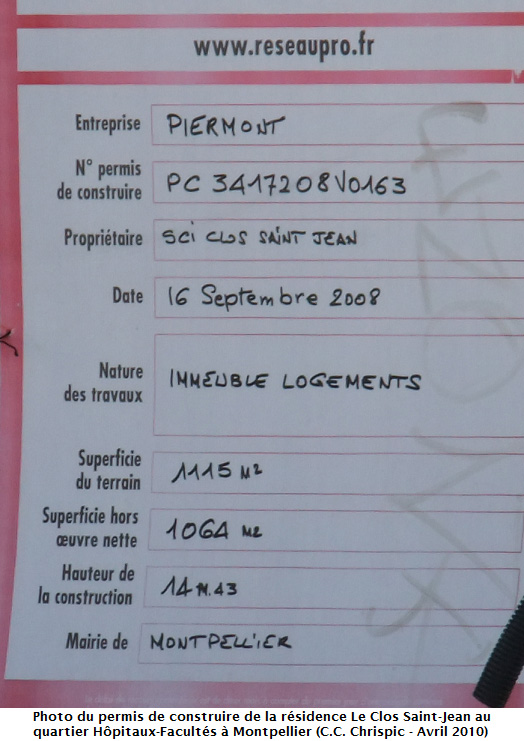 www.reseaupro.fr
Entreprise PIERMONT
N° permis
de construire PC 3417208V0163
Propriétaire SCI CLOS SAINT JEAN
Date 16 Septembre 2008
Nature
des travaux IMMEUBLE LOGEMENTS
Superficie
du terrain 1115 M2
Superficie hors
œuvre nette 1064 M2
Hauteur de
la construction 14 M.43
Mairie de MONTPELLIER
Photo du permis de construire de la résidence Le Clos Saint-Jean au
quartier Hôpitaux-Facultés à Montpellier (C.C. Chrispic - Avril 2010)